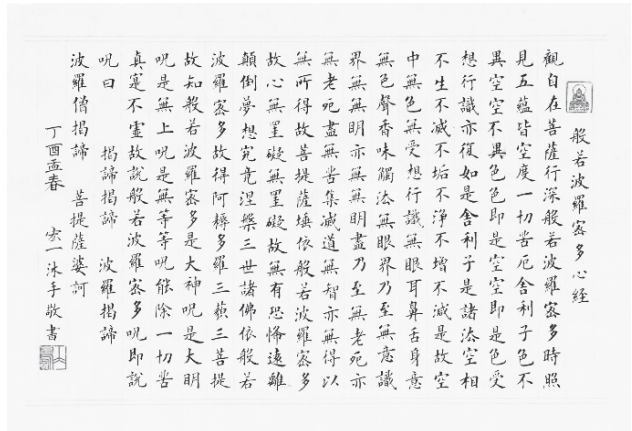 般若波羅蜜多心経
觀自在菩薩行深般若波羅蜜多時照
見五蘊皆空度一切苦厄舍利子色不
異空空不異色色即是空空即是色受
想行識亦復如是舍利子是諸法空相
不生不滅不垢不淨不增不減是故空
中無色無受想行識無眼耳鼻舌身意
無色聲香味觸法無眼界乃至無意識
界無無明亦無無明盡乃至無老死亦
無老死盡無苦集滅道無智亦無得以
無所得故菩提薩埵依般若波羅蜜多
故心無罣礙無罣礙故無有恐怖遠離
顛倒夢想究竟涅槃三世諸佛依般若
波羅蜜多故得阿耨多羅三藐三菩提
故知般若波羅蜜多是大神呪是大明
呪是無上呪是無等等呪能除一切苦
真實不虛故說般若波羅蜜多呪即說
呪曰 揭諦揭諦 波羅揭諦
波羅僧揭諦 菩提薩婆訶
丁酉孟春 一沐手敬書